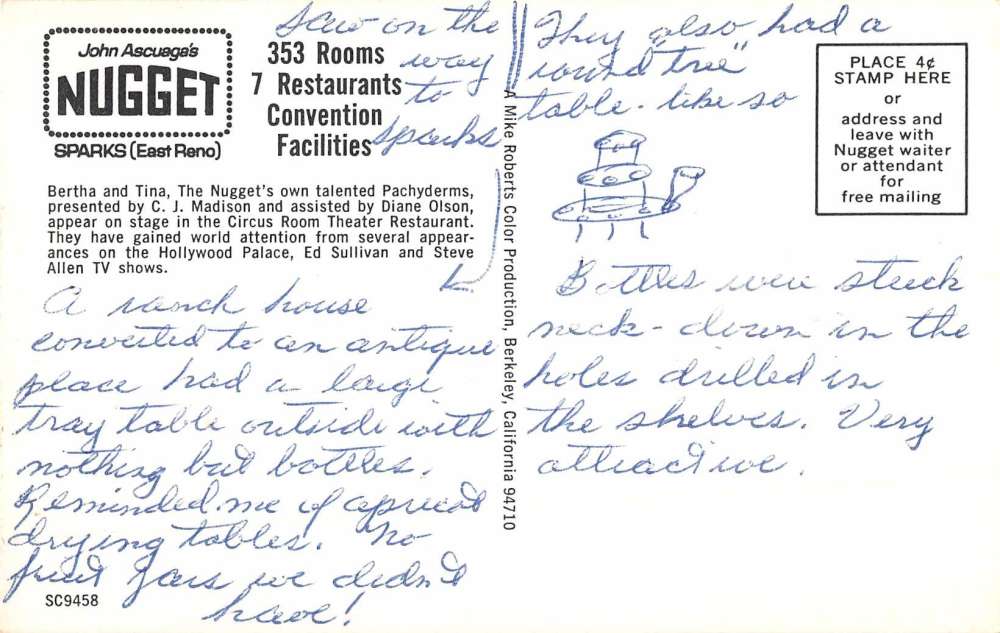 John Ascuaga's
NUGGET
SPARKS (East Reno)
353 Rooms
7 Restaurants
Convention
Facilities
Bertha and Tina, The Nugget's own talented Pachyderms,
presented by C. J. Madison and assisted by Diane Olson,
appear on stage in the Circus Room Theater Restaurant.
They have gained world attention from several appear-
ances on the Hollywood Palace, Ed Sullivan and Steve
Allen TV shows.
Saw on the
way
to
Sparks
A ranch house
converted to an antique
place had a large
tray table outside with
nothing but bottles.
Reminded me of apricot
drying tables. No
fruit jars we didn't
have!
SC9458
A Mike Roberts Color Production, Berkeley, California 94710
They also had a
"round tree"
table - like so
Bottles were stuck
neck-down in the
holes drilled in
the shelves. Very
attractive.
PLACE 4¢
STAMP HERE
or
address and
leave with
Nugget waiter
or attendant
for
free mailing